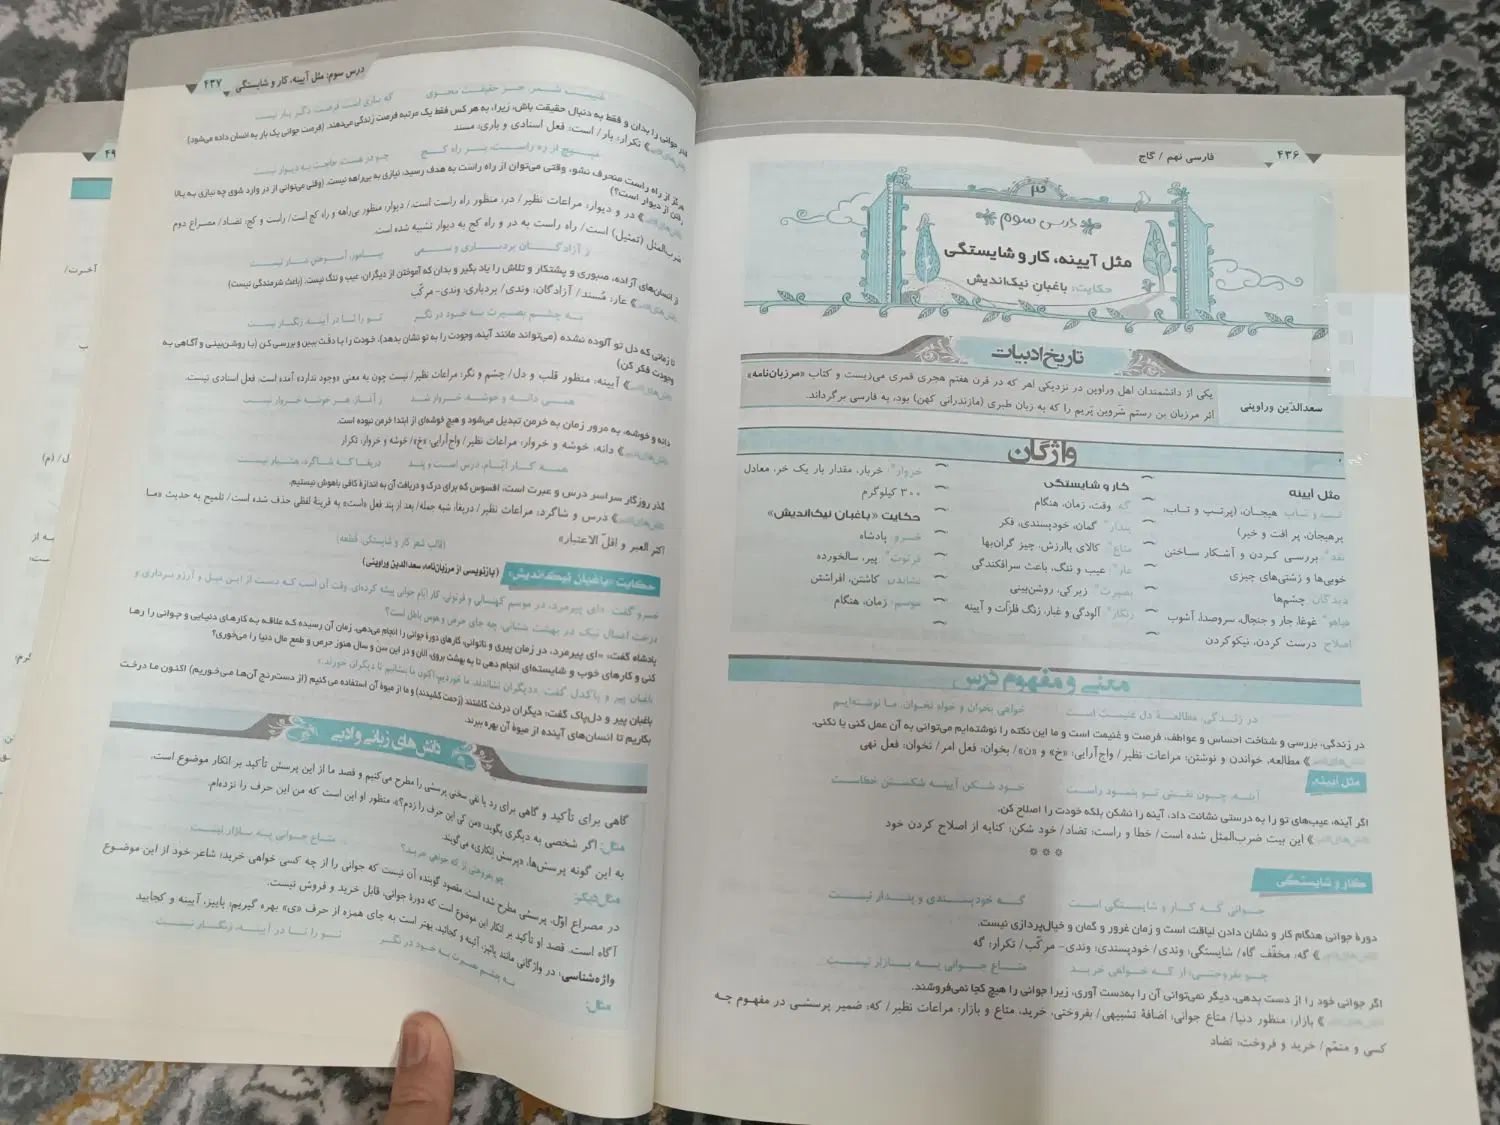 ۴۳۶
فارسی نهم / گاج
۳
درس سوم
مثل آیینه، کار و شایستگی
حکایت: باغبان نیک‌اندیش
تاریخ ادبیات
سعدالدّین وراوینی
یکی از دانشمندان اهل وراوین در نزدیکی اهر که در قرن هفتم هجری قمری می‌زیست و کتاب «مرزبان‌نامه»
اثر مرزبان بن رستم شروین پَریم را که به زبان طبری (مازندرانی کهن) بود، به فارسی برگرداند.
واژگان
مثل آیینه
تب و تاب: هیجان، (پرتب و تاب:
پرهیجان، پر اُفت و خیز)
نقد: بررسی کردن و آشکار ساختن
خوبی‌ها و زشتی‌های چیزی
دیدگان: چشم‌ها
هیاهو: غوغا، جار و جنجال، سروصدا، آشوب
اصلاح: درست کردن، نیکو کردن
کار و شایستگی
گه: وقت، زمان، هنگام
پندار: گمان، خودپسندی، فکر
متاع: کالای باارزش، چیز گران‌بها
عار: عیب و ننگ، باعث سرافکندگی
بصیرت: زیرکی، روشن‌بینی
زنگار: آلودگی و غبار، زنگ فلزّات و آیینه
خروار: خربار، مقدار بار یک خر، معادل
۳۰۰ کیلوگرم
حکایت «باغبان نیک‌اندیش»
خسرو: پادشاه
فرتوت: پیر، سالخورده
نشاندن: کاشتن، افراشتن
موسم: زمان، هنگام
معنی و مفهوم درس
در زندگی، مطالعهٔ دل غنیمت است خواهی بخوان و خواه نخوان، ما نوشته‌ایم
در زندگی، بررسی و شناخت احساس و عواطف، فرصت و غنیمت است و ما این نکته را نوشته‌ایم می‌توانی به آن عمل کنی یا نکنی.
مطالعه، خواندن و نوشتن: مراعات نظیر/ واج‌آرایی: «خ» و «ن»/ بخوان: فعل امر/ نخوان: فعل نهی
مثل آیینه
آینه، چون نقش تو بنمود راست خود شکن آیینه شکستن خطاست
اگر آینه، عیب‌های تو را به درستی نشانت داد، آینه را نشکن بلکه خودت را اصلاح کن.
این بیت ضرب‌المثل شده است/ خطا و راست: تضاد/ خود شکن: کنایه از اصلاح کردن خود
* * *
کار و شایستگی
جوانی گه کار و شایستگی است گه خودپسندی و پندار نیست
دورهٔ جوانی هنگام کار و نشان دادن لیاقت است و زمان غرور و گمان و خیال‌پردازی نیست.
گه: مخفّف گاه/ شایستگی: وندی/ خودپسندی: وندی- مرکّب/ تکرار: گه
چو بفروختی، از که خواهی خرید متاع جوانی به بازار نیست
اگر جوانی خود را از دست بدهی، دیگر نمی‌توانی آن را به‌دست آوری، زیرا جوانی را هیچ کجا نمی‌فروشند.
بازار: منظور دنیا/ متاع جوانی: اضافهٔ تشبیهی/ بفروختی، خرید، متاع و بازار: مراعات نظیر/ که: ضمیر پرسشی در مفهوم چه
کسی و متمّم/ خرید و فروخت: تضاد
درس سوم: مثل آیینه، کار و شایستگی
۴۳۷
غنیمت شمر، جز حقیقت مجوی که باری است فرصت دگر بار نیست
قدر جوانی را بدان و فقط به دنبال حقیقت باش، زیرا، به هر کس فقط یک مرتبه فرصت زندگی می‌دهند. (فرصت جوانی یک بار به انسان داده می‌شود)
تکرار: بار/ است: فعل اسنادی و باری: مسند
مپیچ از ره راست، بر راه کج چو در هست، حاجت به دیوار نیست
هرگز از راه راست منحرف نشو، وقتی می‌توان از راه راست به هدف رسید، نیازی به بی‌راهه نیست. (وقتی می‌توانی از در وارد شوی چه نیازی به بالا
رفتن از دیوار است؟)
در و دیوار: مراعات نظیر/ در، منظور راه راست است./ دیوار، منظور بی‌راهه و راه کج است/ راست و کج: تضاد/ مصراع دوم
ضرب‌المثل (تمثیل) است/ راه راست به در و راه کج به دیوار تشبیه شده است.
ز آزادگان بردباری و سعی بیاموز، آموختن عار نیست
از انسان‌های آزاده، صبوری و پشتکار و تلاش را یاد بگیر و بدان که آموختن از دیگران، عیب و ننگ نیست. (باعث شرمندگی نیست)
عار: مُسند/ آزادگان: وندی/ بردباری: وندی- مرکّب
به چشم بصیرت به خود در نگر تو را تا در آیینه، زنگار نیست
تا زمانی که دل تو آلوده نشده (می‌تواند مانند آینه، وجودت را به تو نشان بدهد)، خودت را با دقّت ببین و بررسی کن (با روشن‌بینی و آگاهی به
وجودت فکر کن)
آیینه: منظور قلب و دل/ چشم و نگر: مراعات نظیر/ نیست چون به معنی «وجود ندارد» آمده است، فعل اسنادی نیست.
همی دانه و خوشه، خروار شد ز آغاز، هر خوشه خروار نیست
دانه و خوشه، به مرور زمان به خرمن تبدیل می‌شود و هیچ خوشه‌ای از ابتدا خرمن نبوده است.
دانه، خوشه و خروار: مراعات نظیر/ واج‌آرایی: «خ»/ خوشه و خروار: تکرار
همه کار ایّام، درس است و پند دریغا که شاگرد، هشیار نیست
گذر روزگار سراسر درس و عبرت است، افسوس که برای درک و دریافت آن به اندازهٔ کافی باهوش نیستیم.
درس و شاگرد: مراعات نظیر/ دریغا: شبه جمله/ بعد از پند فعل «است» به قرینهٔ لفظی حذف شده است/ تلمیح به حدیث «ما
اکثر العبر و اقلّ الاعتبار»
(قالب شعر کار و شایستگی: قطعه)
حکایت «باغبان نیک‌اندیش»
(بازنویسی از مرزبان‌نامه، سعدالدین وراوینی)
خسرو گفت: «ای پیرمرد، در موسم کهنسالی و فرتوتی، کار ایّام جوانی پیشه کرده‌ای. وقت آن است که دست از این میل و آرزو برداری و
درخت اعمال نیک در بهشت نشانی، چه جای حرص و هوس باطل است؟
پادشاه گفت: «ای پیرمرد، در زمان پیری و ناتوانی، کارهای دورهٔ جوانی را انجام می‌دهی. زمان آن رسیده که علاقه به کارهای دنیایی و جوانی را رها
کنی و کارهای خوب و شایسته‌ای انجام دهی تا به بهشت بروی، الان و در این سن و سال هنوز حرص و طمع مال دنیا را می‌خوری؟
باغبان پیر و پاکدل گفت: «دیگران نشاندند، ما خوردیم؛ اکنون ما بنشانیم تا دیگران خورند.»
باغبان پیر و دل‌پاک گفت: دیگران درخت کاشتند (زحمت کشیدند) و ما از میوهٔ آن استفاده می‌کنیم (از دست‌رنج آن‌ها می‌خوریم) اکنون ما درخت
بکاریم تا انسان‌های آینده از میوهٔ آن بهره ببرند.
دانش‌های زبانی و ادبی
گاهی برای تأکید و گاهی برای رد یا نفی سخنی پرسشی را مطرح می‌کنیم و قصد ما از این پرسش تأکید بر انکار موضوع است.
مثال: اگر شخصی به دیگری بگوید: «من کی این حرف را زدم؟»، منظور او این است که من این حرف را نزده‌ام.
به این گونه پرسش‌ها، «پرسش انکاری» می‌گویند.
چو بفروختی از که خواهی خرید؟ متاع جوانی به بازار نیست
مثال دیگر:
در مصراع اوّل، پرسشی مطرح شده است، مقصود گوینده آن نیست که جوانی را از چه کسی خواهی خرید؛ شاعر خود از این موضوع
آگاه است. قصد او تأکید بر انکار این موضوع است که دورهٔ جوانی، قابل خرید و فروش نیست.
واژه‌شناسی: در واژگانی مانند پائیز، آئینه و کجائید، بهتر است به جای همزه از حرف «ی» بهره گیریم: پاییز، آیینه و کجایید
به چشم بصیرت به خود در نگر تو را تا در آیینه، زنگار نیست
مثال: